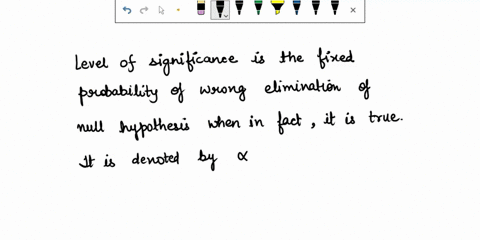 Level of significance is the fixed
probability of wrong elimination of
null hypothesis when in fact, it is true.
It is denoted by α